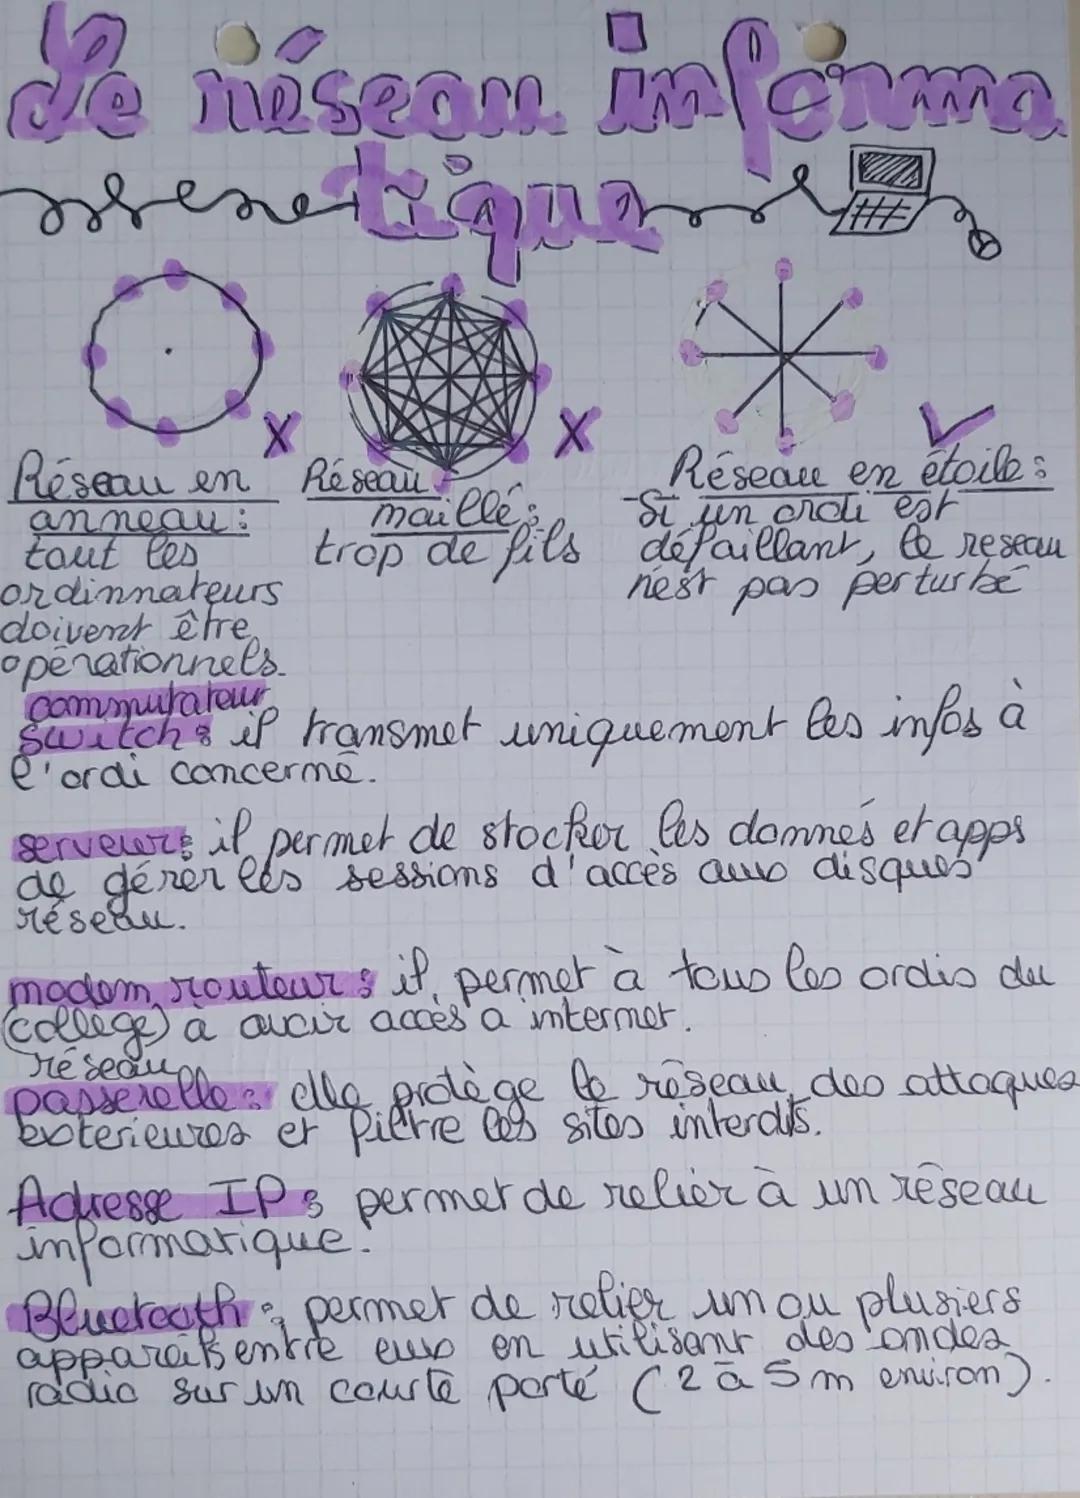 Le réseau informa
tique
X
X
Réseau en
anneau :
tout les
ordinnateurs
doivent être
opérationnels.
Réseau
maillé :
trop de fils
Réseau en étoile :
-Si un ordi est
défaillant, le reseau
n'est pas perturbé
commutateur
switch : il transmet uniquement les infos à
l'ordi concerné.
serveur : il permet de stocker les donnés et apps
de gérer les sessions d'accès aux disques
réseau.
modem routeur : il permet à tous les ordis du
(collège) à avoir accès à internet.
réseau
passerelle : elle protège le réseau des attaques
exterieures et filtre les sites interdits.
Adresse IP : permet de relier à un réseau
informatique.
Bluetooth : permet de relier un ou plusiers
appareils entre eux en utilisant des ondes
radio sur un courte porté (2 à 5 m environ).